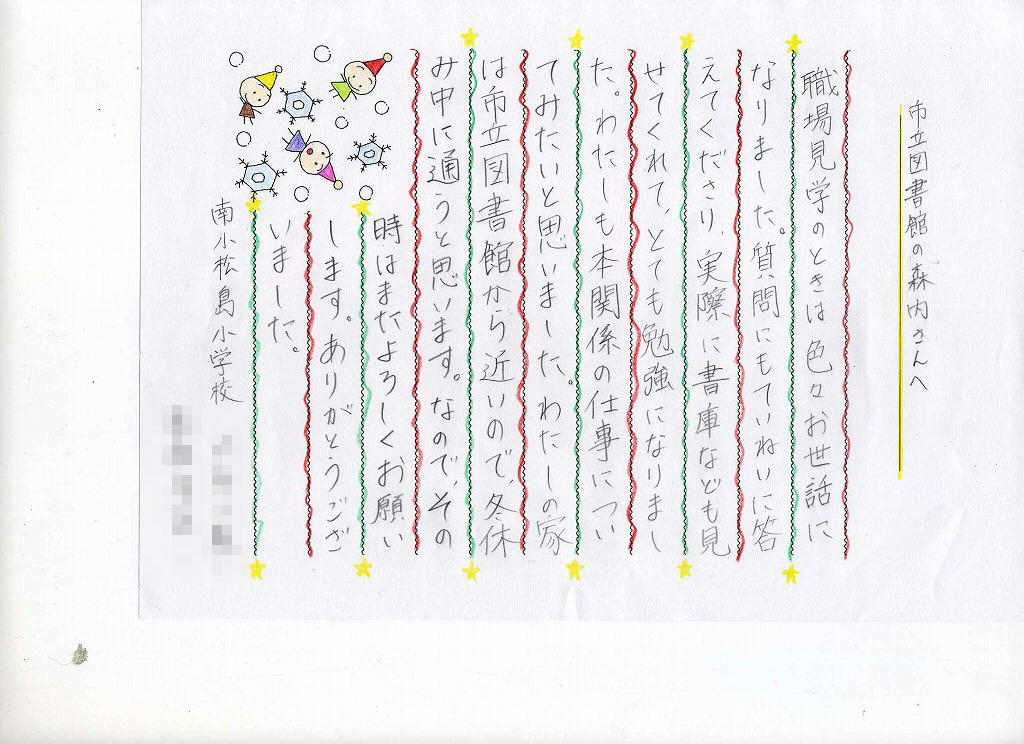 市立図書館の森内さんへ
職場見学のときは色々お世話に
なりました。質問にもていねいに答
えてくださり、実際に書庫なども見
せてくれて、とても勉強になりまし
た。わたしも本関係の仕事につい
てみたいと思いました。わたしの家
は市立図書館から近いので、冬休
み中に通うと思います。なので、その
時はまたよろしくお願い
します。ありがとうござ
いました。
南小松島小学校